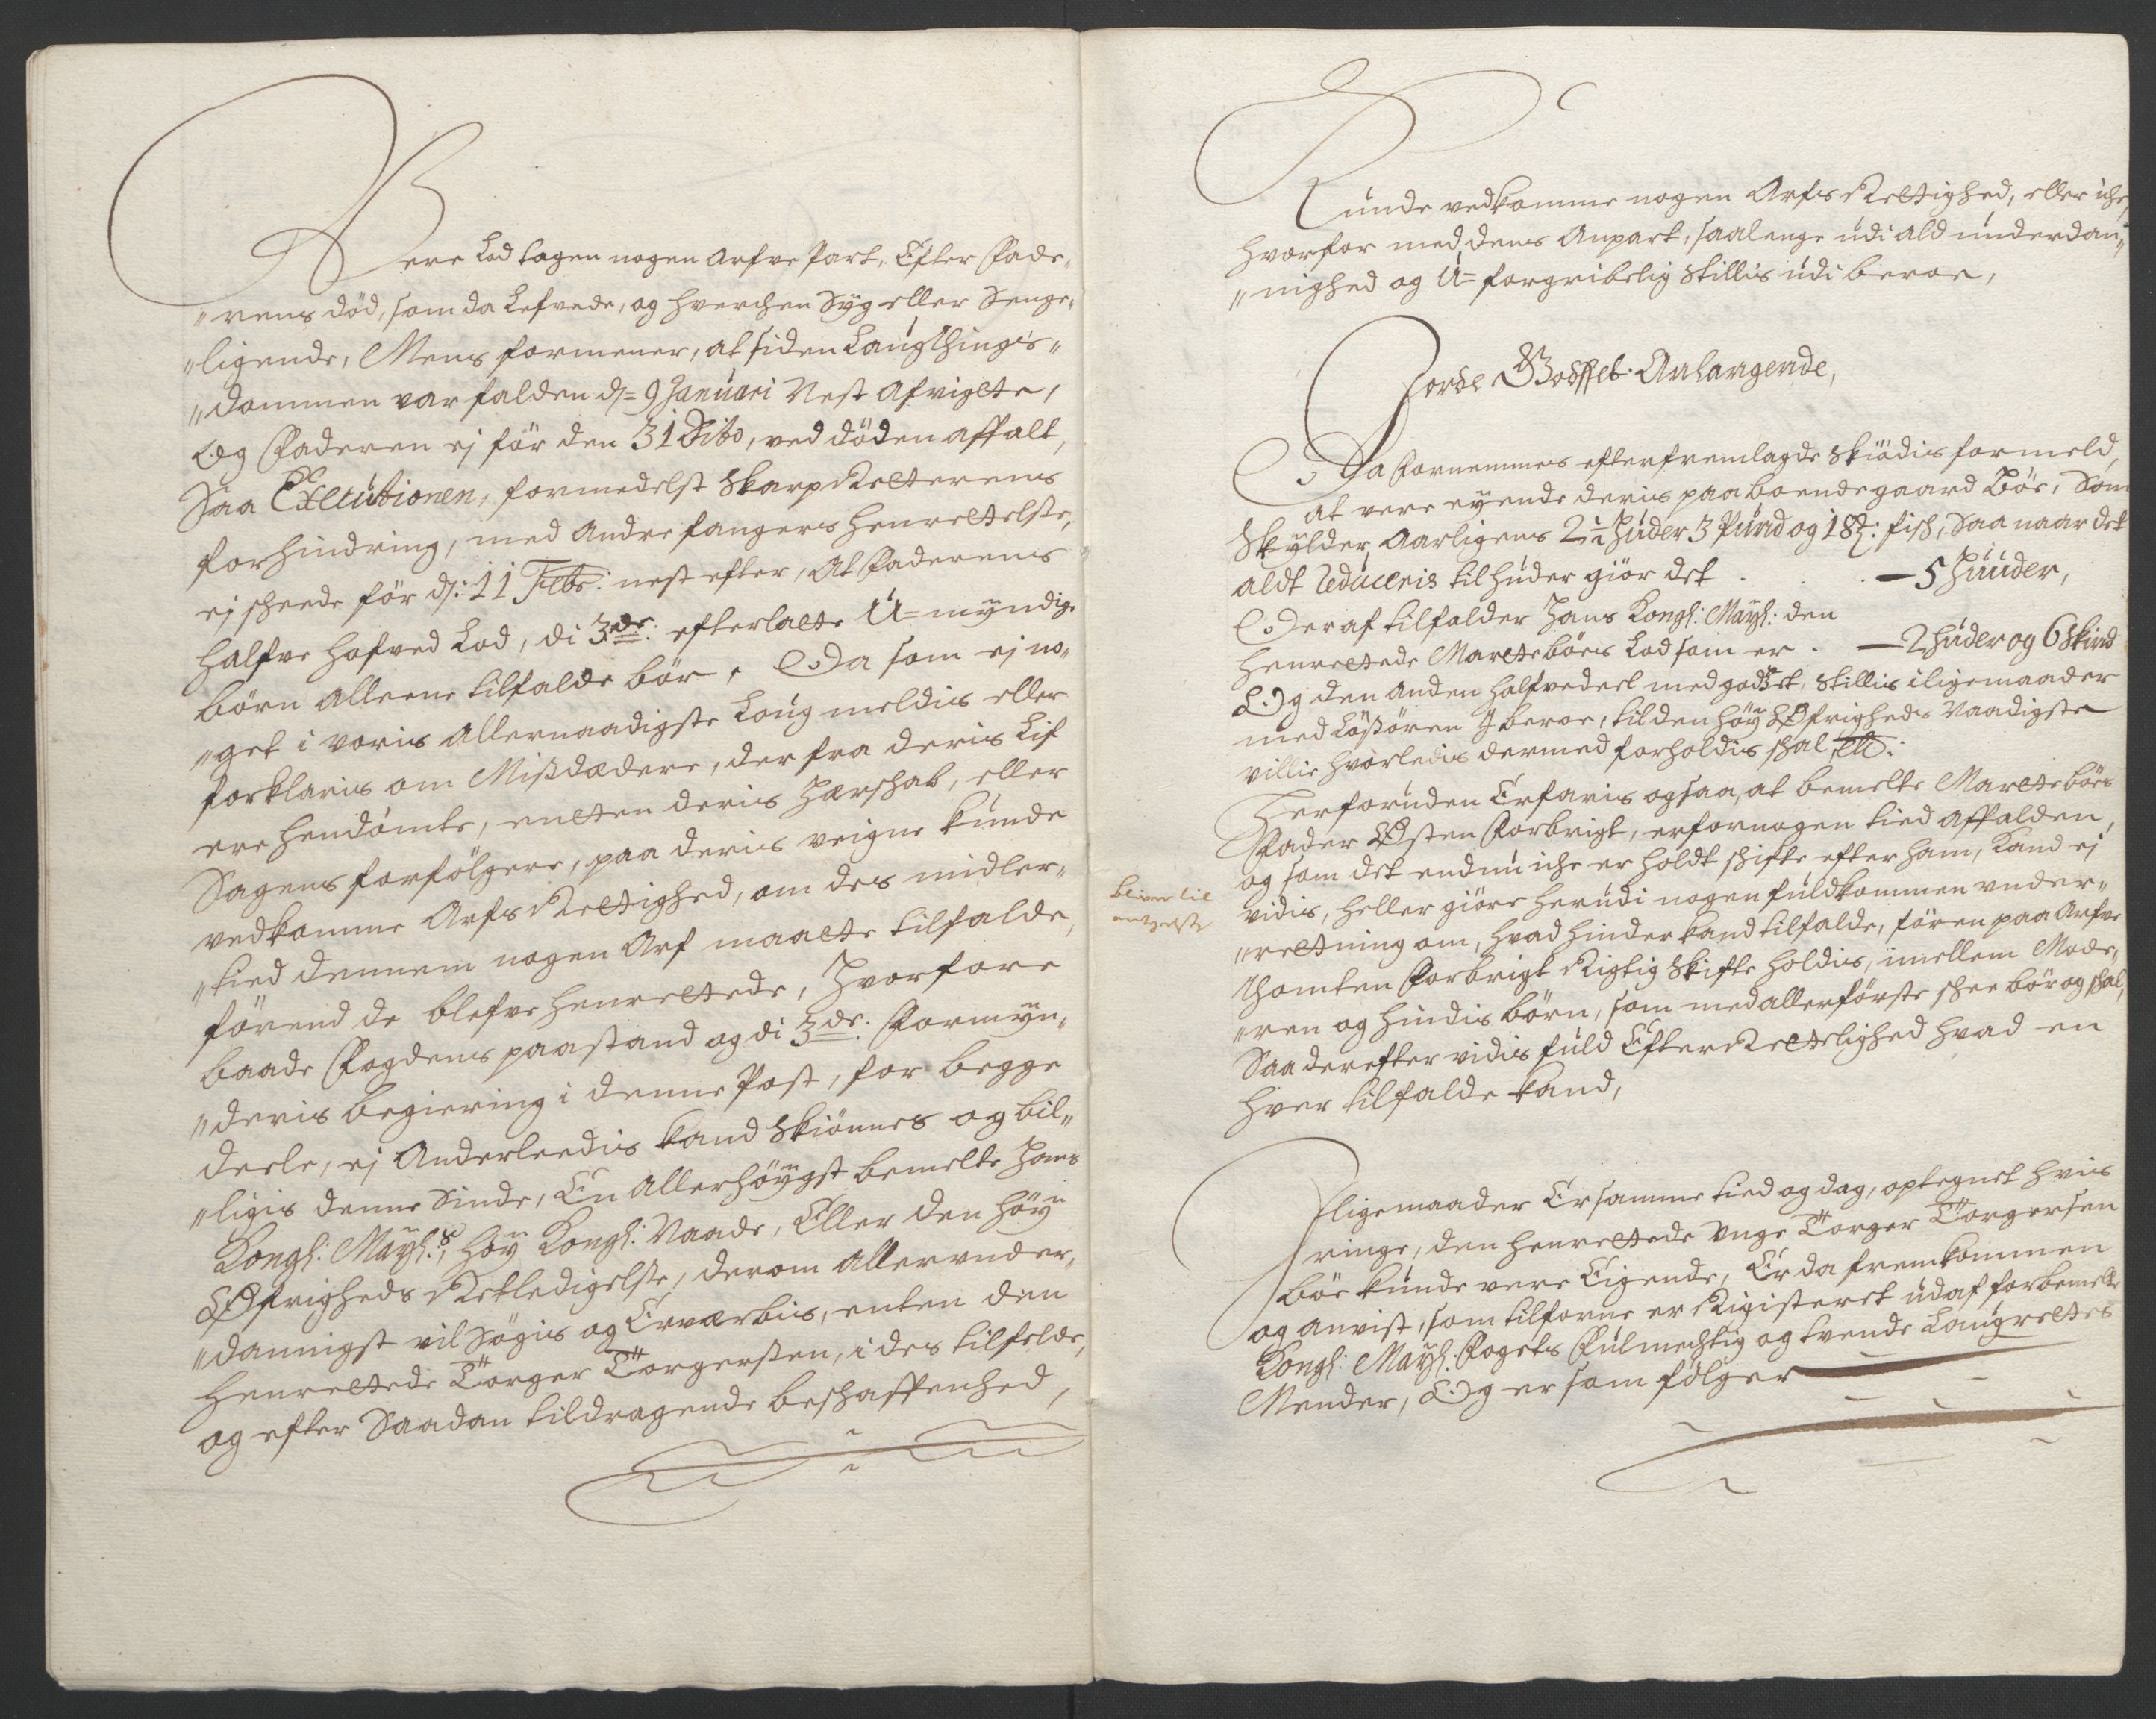 Vere Lod tagen nogen Arfve Part, Efter Fade„
„rens död, som da Lefvede, og hverchen Syg eller Senge„
„ligende, Mens formener, at siden Laugthings„
„dommen var falden d= 9 Januari Nest afvigte,
Og Faderen ej för den 31 Dito, ved döden affalt,
Saa Execution​en, formedelst Skarp Retterens
forhindring, med andre fangers henrettelse,
ej scheede för d: 11 Febr: nest efter, At Faderens
halfve hofved Lod, di 3de: efterlatte U=myndige
börn alleene tilfalde bör, Da som ej no„
„get i voris allernaadigste Loug meldis eller
forklaris om Missdædere, der fra deris Lif
ere hendömte, enten deris Herschab, eller
Sagens forfölgere, paa deris veigne kunde
vedkomme Arfs Rettighed, om des midler„
„tied dennem nogen Arf maatte tilfalde,
förend de blefve henrettede, Hvorfore
baade Fogdens paastand og di 3de: Formyn„
„deris begiering i denne Post, for begge
deele, ej Anderleedis kand skiönnes og bil„
„ligis denne Sinde, En Allerhöygst bemelte Hans
Kongl: Mayh:s, höy Kongl: Naade, Eller den höy
Øfrigheds Retledigelse, derom allerunder„
„danigst vil Sögis og Erværbis, enten den
henrettede Törger Törgersen, i des tilfelde,
og efter Saadan tildragende beschaffenhed,
Kunde vedkomme nogen Arfs Rettighed, eller iche,
hvorfor med dens Anpart, saalenge udi ald underdan„
„nighed og U=forgribelig Stillis udi beroe,
Jorde Godset Anlangende,
Da Fornemmes efter fremlagde Skiödis formeld,
at vere eyende deris paaboende gaard Böe, Som
Skylder Aarligens 2½ Huder 3 Pund og 18 ℔: fisk, Saa naar det
aldt Reduceris til huder giör det . . . — 5 Huuder,
Deraf tilfalder Hans Kongl: Mayh: den
henrettede Marete böes Lod som er . — 2 Huder og 6 Skind
Og den Anden halfvedeel med godset, Stillis iligemaader
med Lössören I beroe, til den höy Øfrigheds Naadigste
villie hvorledis dermed forholdis skal, etc:
Herforuden Erfaris ogsaa, at bemelte Marete böes
Fader Østen Forbrigt, er for nogen tied affalden,
og som det endnu iche er holdt skifte efter ham, kand ej
vidis, heller giöre herudi nogen fuldkommen under„
bliver til
„retning om, hvad hinder kand tilfalde, fören paa Arfve
Thomten Forbrigt Rigtig Skifte holdis, imellem Mode„
„ren og hindis börn, som med allerförste skee bör og skal,
Saa derefter vidis fuld Efter Rettelighed hvad en
hver tilfalde kand,
Iligemaader Er samme tied og dag, optegnet hvis
ringe, den henrettede unge Törger Törgersen
Böe kunde vere Eigende, Er da fremkommen
og anvist, som tilforne er Rigisteret udaf forbemelte
Kongl: Mayh: Fogets Fulmechtig og tvende Laugrettes
Mender, Og er som fölger